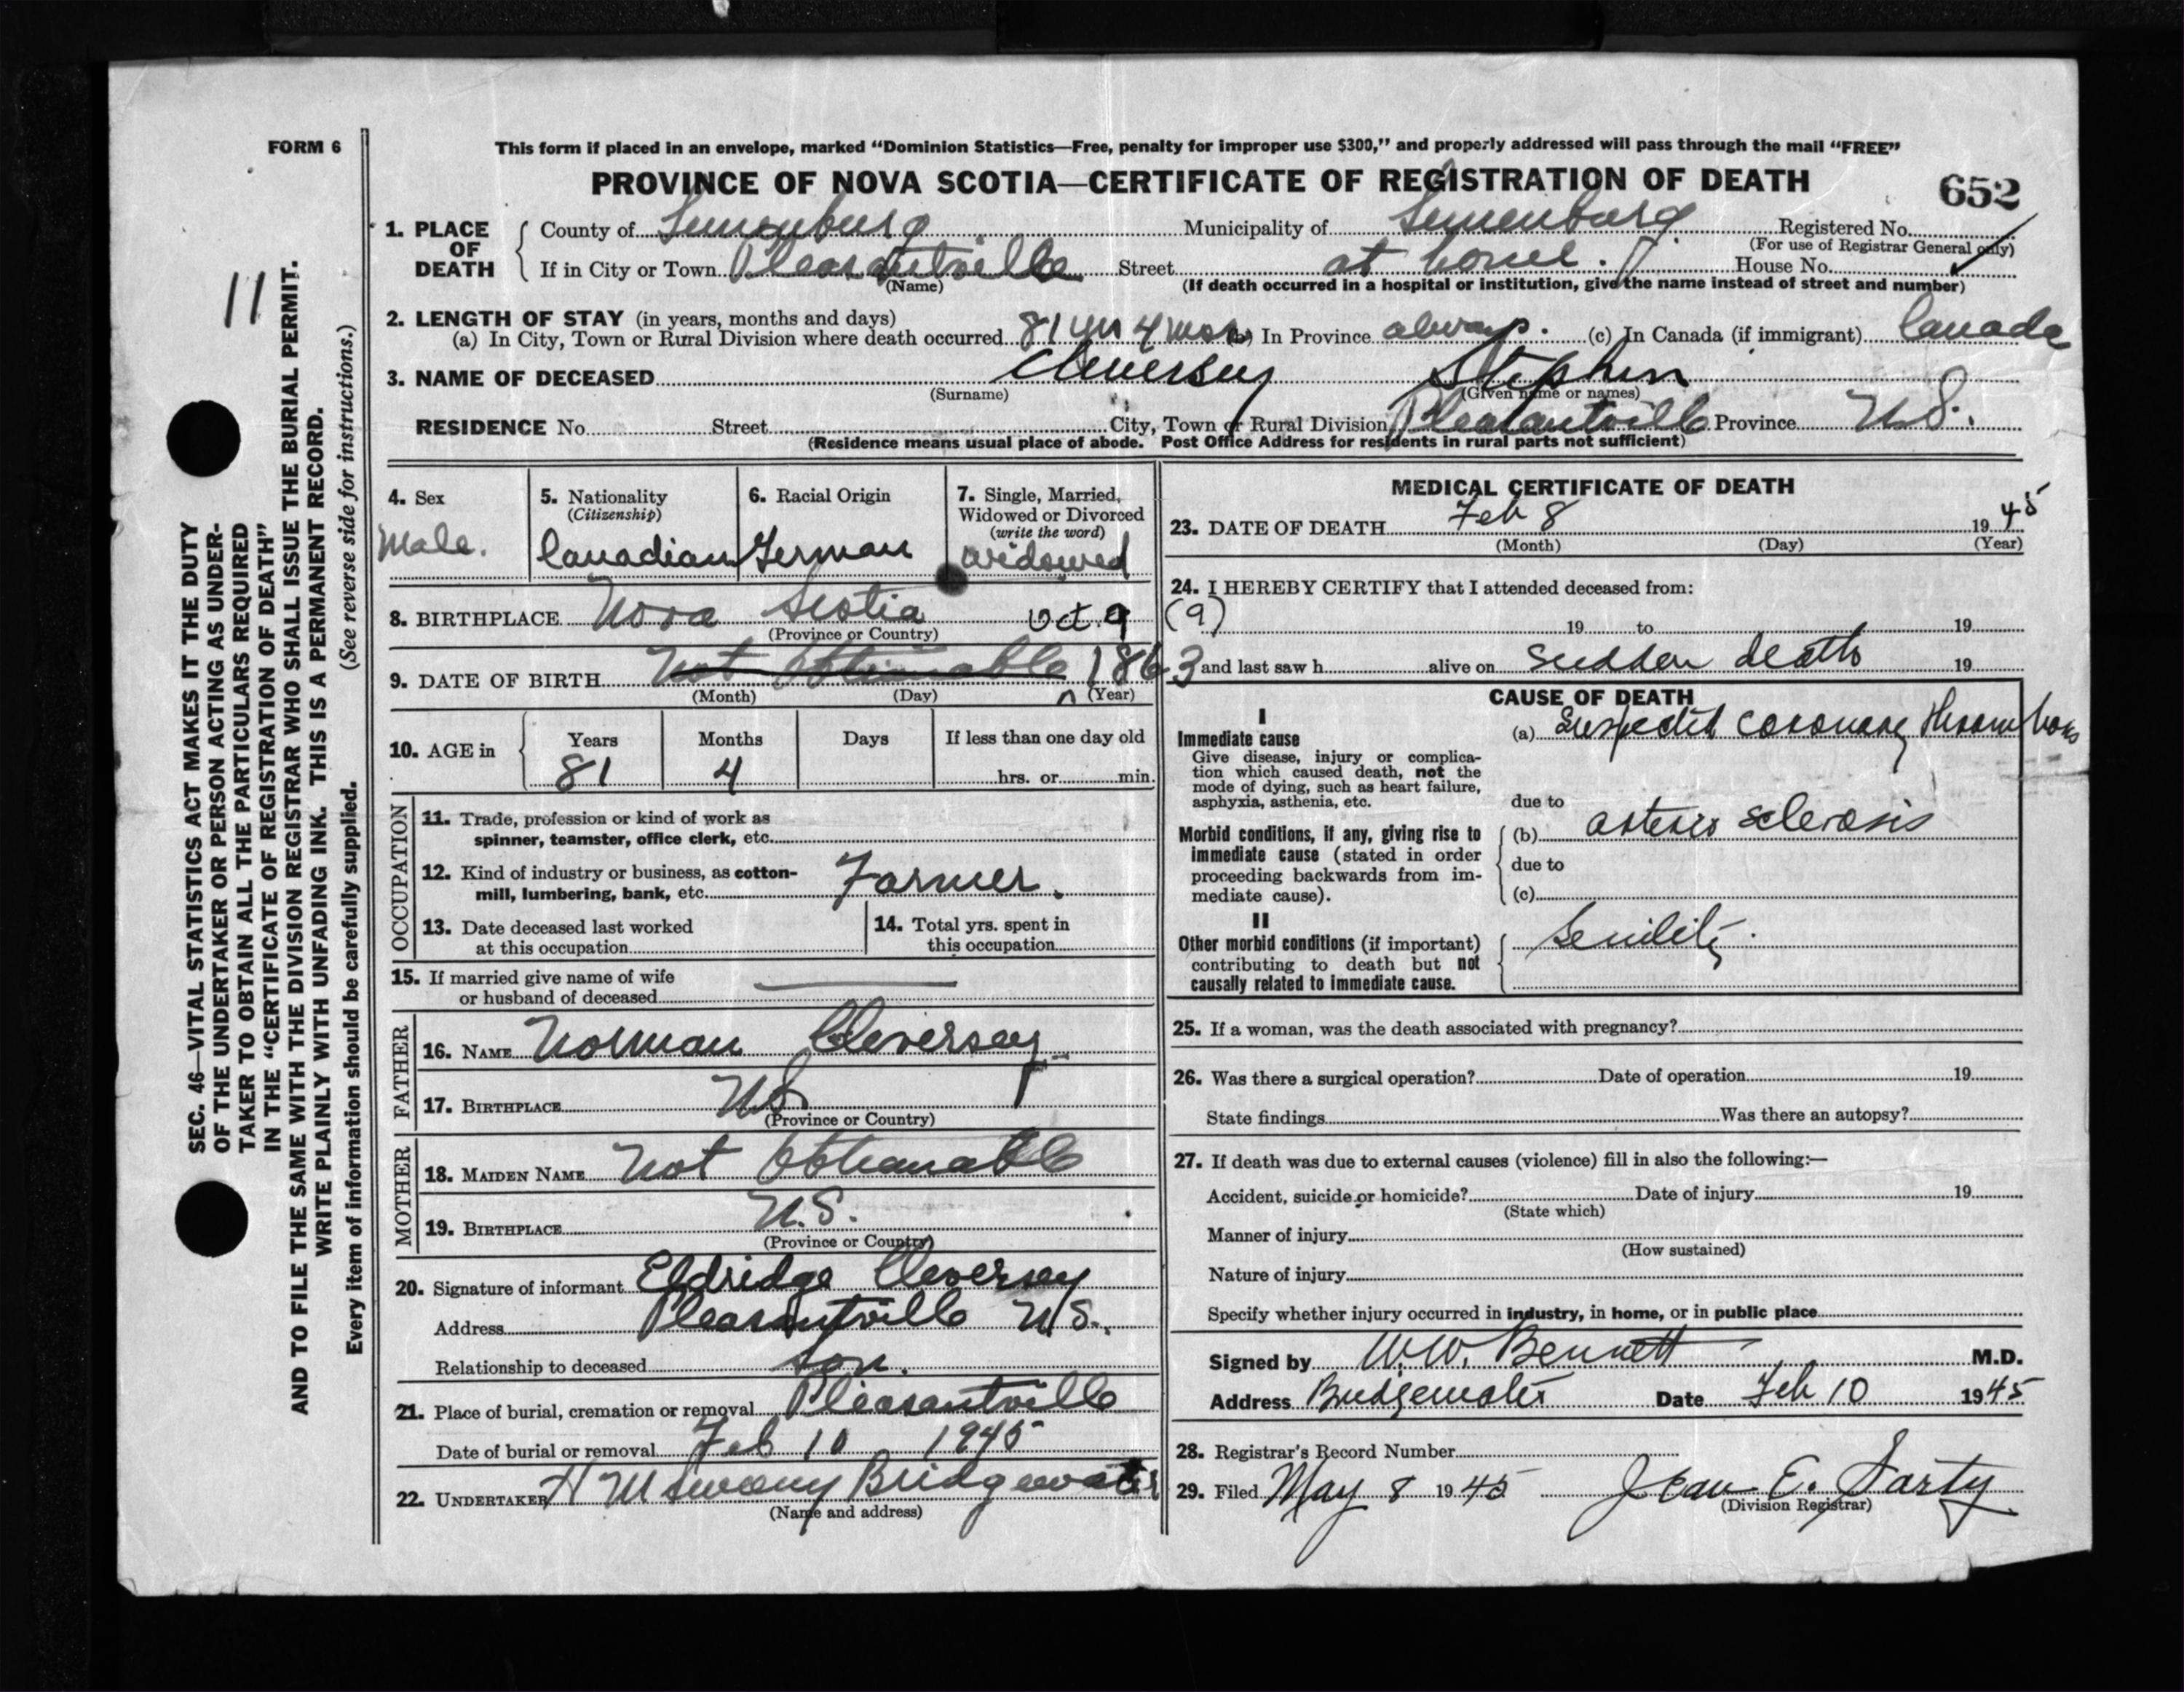 FORM 6
This form if placed in an envelope, marked “Dominion Statistics—Free, penalty for improper use $300,” and properly addressed will pass through the mail “FREE”
PROVINCE OF NOVA SCOTIA—CERTIFICATE OF REGISTRATION OF DEATH
652
1. PLACE OF DEATH
County of Lunenburg Municipality of Lunenburg Registered No.
(For use of Registrar General only)
If in City or Town Pleasantville Street at home. House No.
(Name) (If death occurred in a hospital or institution, give the name instead of street and number)
2. LENGTH OF STAY (in years, months and days)
(a) In City, Town or Rural Division where death occurred 81 yrs 4 mos (b) In Province always. (c) In Canada (if immigrant) Canada
3. NAME OF DECEASED Cleversey Stephen
(Surname) (Given name or names)
RESIDENCE No. Street City, Town or Rural Division Pleasantville Province N.S.
(Residence means usual place of abode. Post Office Address for residents in rural parts not sufficient)
4. Sex
Male.
5. Nationality
(Citizenship)
Canadian
6. Racial Origin
German
7. Single, Married,
Widowed or Divorced
(write the word)
widowed
8. BIRTHPLACE Nova Scotia Oct. 9 (9)
(Province or Country)
9. DATE OF BIRTH Not Obtainable 1863
(Month) (Day) (Year)
10. AGE in
Years Months Days If less than one day old
81 4 hrs. or min.
OCCUPATION
11. Trade, profession or kind of work as
spinner, teamster, office clerk, etc.
12. Kind of industry or business, as cotton-
mill, lumbering, bank, etc. Farmer.
13. Date deceased last worked
at this occupation
14. Total yrs. spent in
this occupation
15. If married give name of wife
or husband of deceased
FATHER
16. NAME Norman Cleversey
17. BIRTHPLACE N.S.
(Province or Country)
MOTHER
18. MAIDEN NAME Not Obtianable
19. BIRTHPLACE N.S.
(Province or Country)
20. Signature of informant Eldridge Cleversey
Address Pleasantville N.S.
Relationship to deceased Son.
21. Place of burial, cremation or removal Pleasantville
Date of burial or removal Feb 10 1945
22. UNDERTAKER H M Sweeny Bridgewater
(Name and address)
MEDICAL CERTIFICATE OF DEATH
23. DATE OF DEATH Feb 8 19 45
(Month) (Day) (Year)
24. I HEREBY CERTIFY that I attended deceased from:
19 to 19
and last saw h alive on sudden death 19
CAUSE OF DEATH
I
Immediate cause
Give disease, injury or complica-
tion which caused death, not the
mode of dying, such as heart failure,
asphyxia, asthenia, etc.
(a) Suspected coronary thrombosis
due to
Morbid conditions, if any, giving rise to
immediate cause (stated in order
proceeding backwards from im-
mediate cause).
(b) arterio sclerosis
due to
(c)
II
Other morbid conditions (if important)
contributing to death but not
causally related to immediate cause.
Senility.
25. If a woman, was the death associated with pregnancy?
26. Was there a surgical operation? Date of operation 19
State findings Was there an autopsy?
27. If death was due to external causes (violence) fill in also the following:—
Accident, suicide or homicide? Date of injury 19
(State which)
Manner of injury
(How sustained)
Nature of injury
Specify whether injury occurred in industry, in home, or in public place
Signed by W.W. Bennett M.D.
Address Bridgewater Date Feb 10 1945
28. Registrar's Record Number
29. Filed May 8 19 45 Jean E. Sarty
(Division Registrar)
11
SEC. 46—VITAL STATISTICS ACT MAKES IT THE DUTY
OF THE UNDERTAKER OR PERSON ACTING AS UNDER-
TAKER TO OBTAIN ALL THE PARTICULARS REQUIRED
IN THE “CERTIFICATE OF REGISTRATION OF DEATH”
AND TO FILE THE SAME WITH THE DIVISION REGISTRAR WHO SHALL ISSUE THE BURIAL PERMIT.
WRITE PLAINLY WITH UNFADING INK. THIS IS A PERMANENT RECORD.
Every item of information should be carefully supplied. (See reverse side for instructions.)